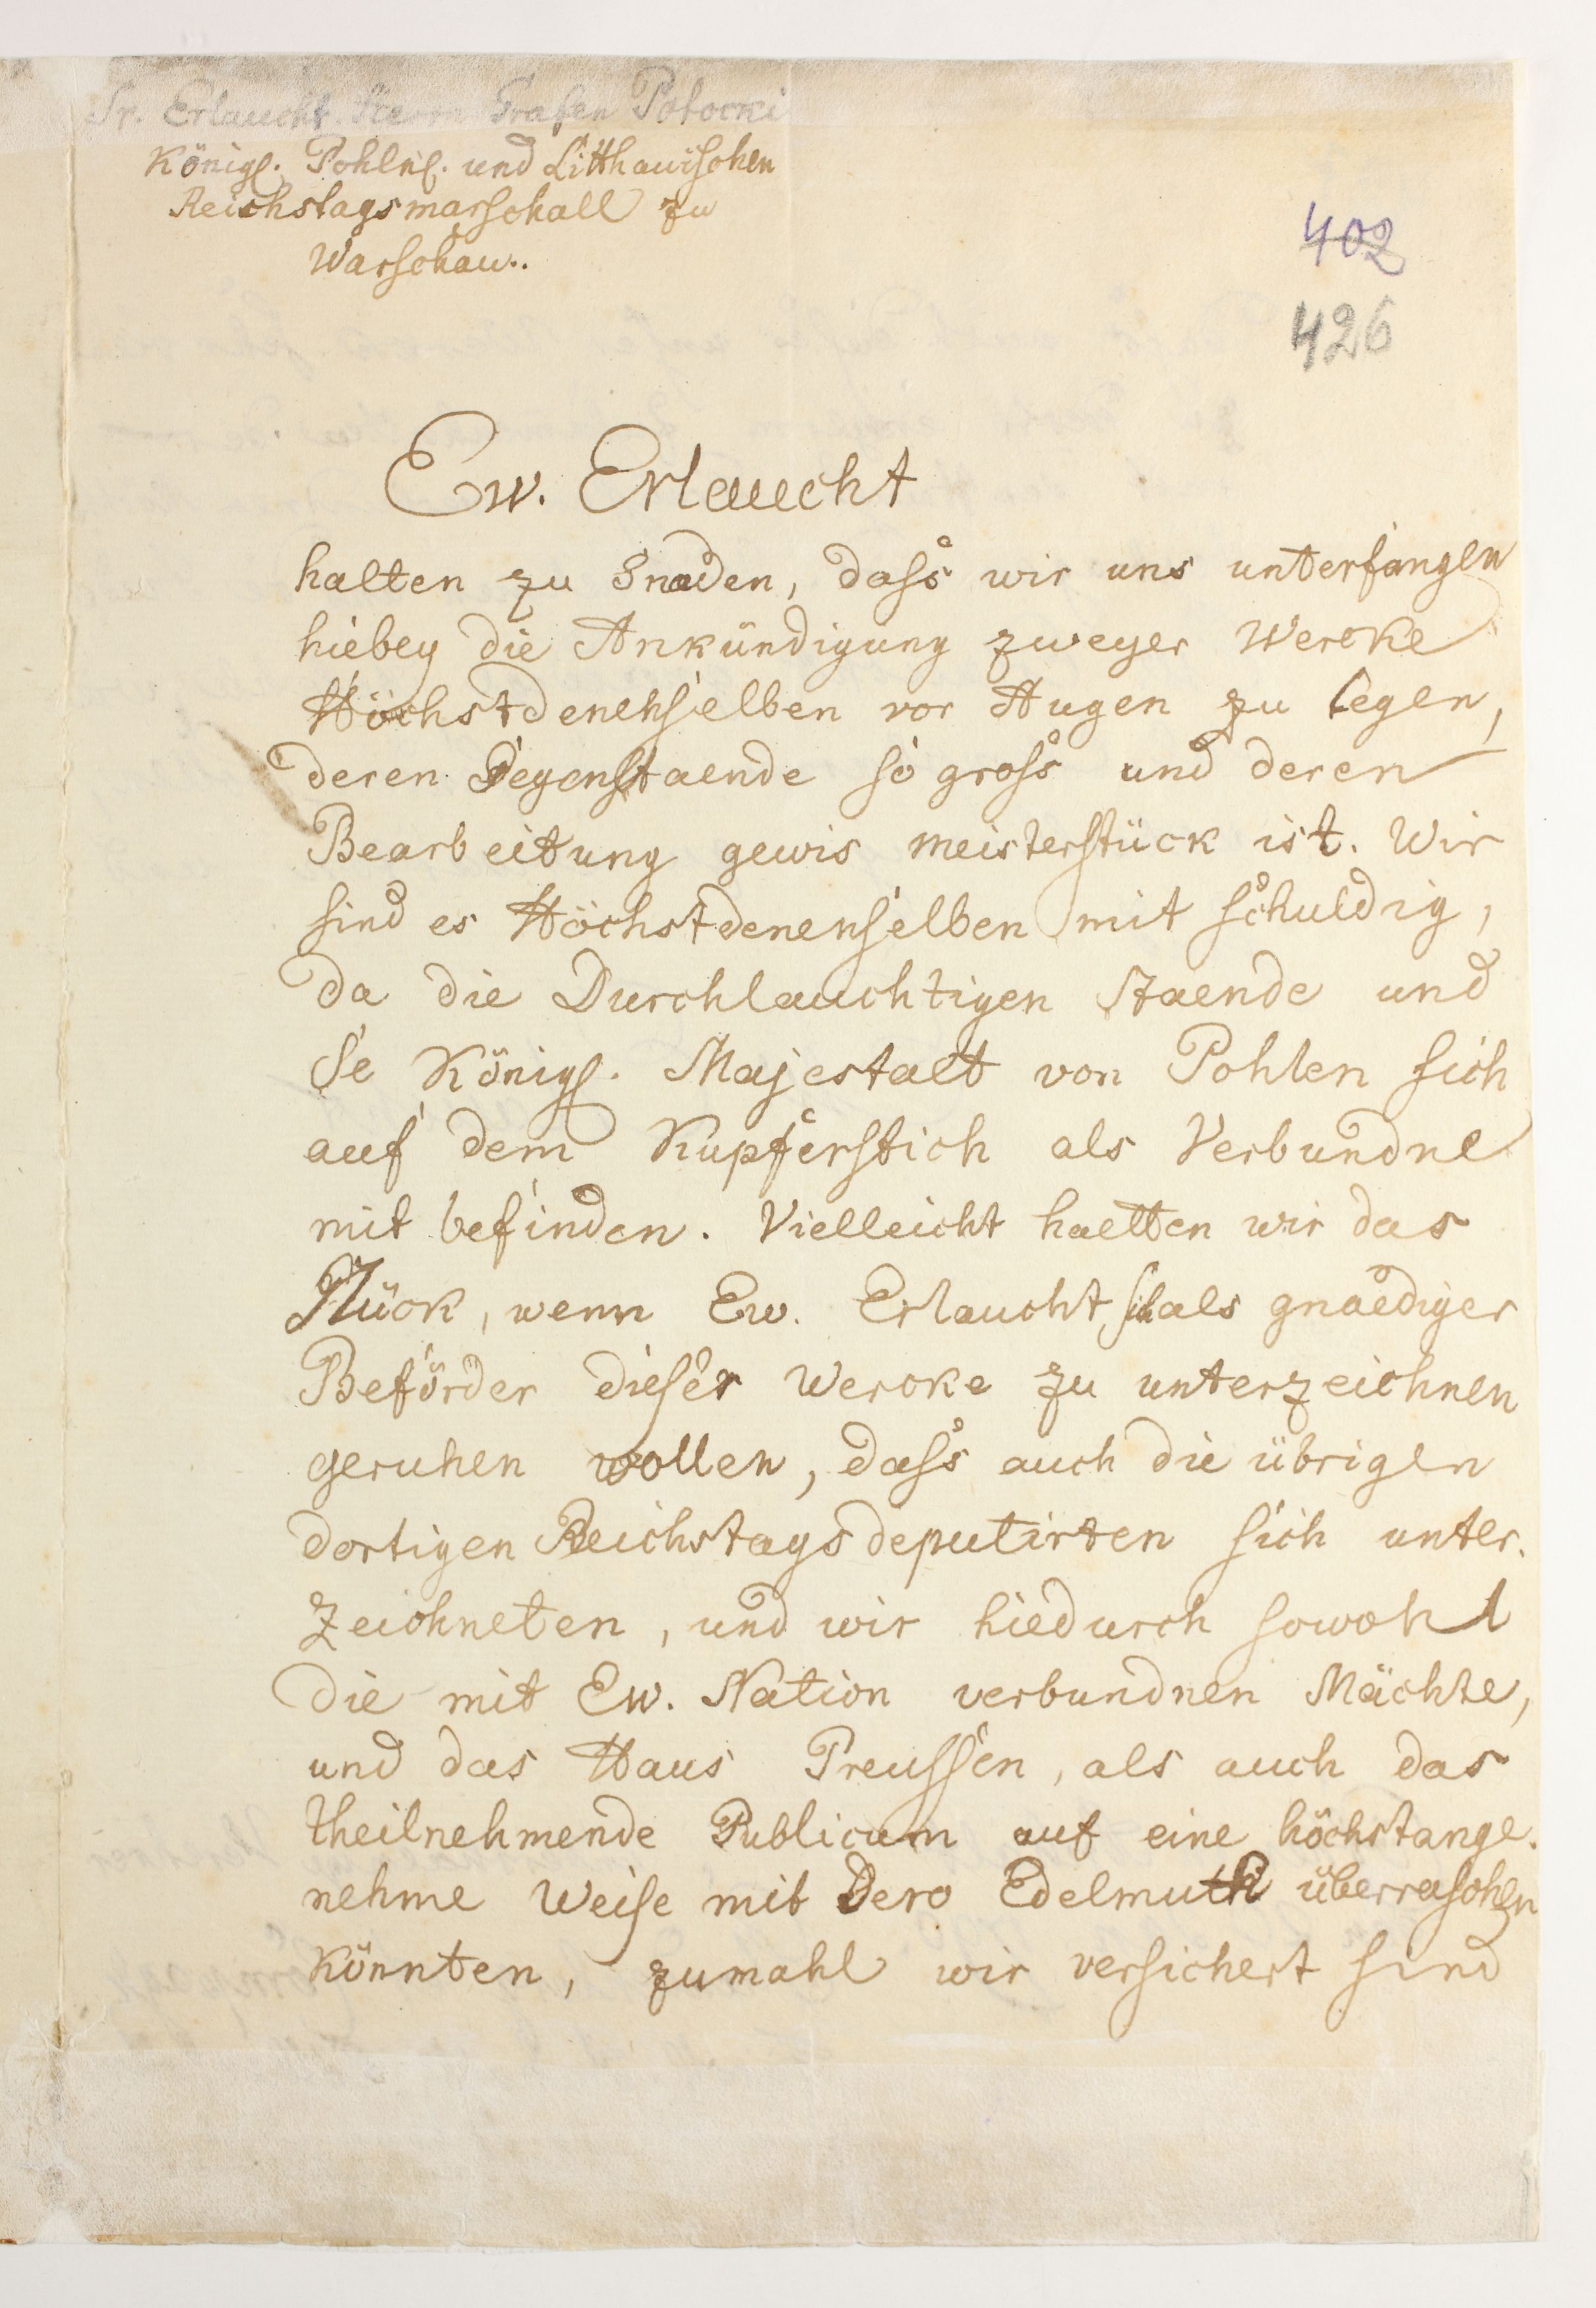 Sr. Erlaucht Herrn Grafen Potocki
Königl. Pohlnl. und Litthauischen
Reichstagsmarschall zu
Warschau..
402
426
Ew. Erlaucht
halten zu Gnaden, dass wir uns unterfangen
hiebey die Ankündigung zweyer Wercke
Höchstdenenselben vor Augen zu legen,
deren Gegenstaende so gross und deren
Bearbeitung gewis meisterstück ist. Wir
sind es Höchstdenenselben mit schuldig,
da die Durchlauchtigen Staende und
Se Königl. Majestaet von Pohlen sich
auf dem Kupferstich als Verbundne
mit befinden. Vielleicht haetten wir das
Glück, wenn Ew. Erlaucht sich als gnaediger
Beförder dieser Wercke zu unterzeichnen
geruhen wollen, dass auch die übrigen
dortigen Reichstagsdeputirten sich unter.
zeichneten, und wir hiedurch sowohl
die mit Ew. Nation verbundnen Mächte,
und das Haus Preussen, als auch das
theilnehmende Publicum auf eine höchstange.
nehme Weise mit Dero Edelmuth überraschen
könnten, zumahl wir versichert sind